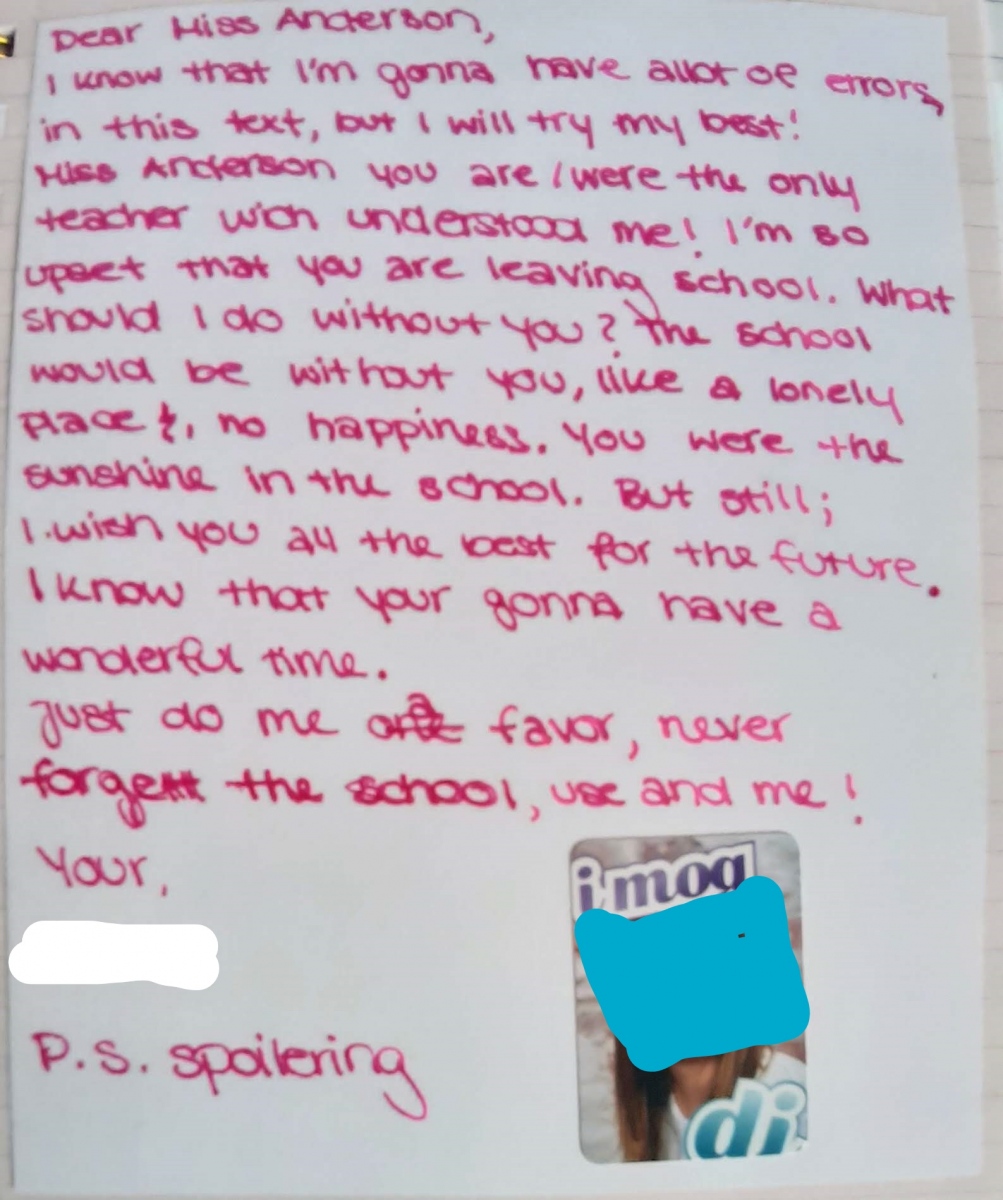 Dear Miss Anderson,
I know that I'm gonna have allot of errors,
in this text, but I will try my best!
Miss Anderson you are / were the only
teacher wich understood me! I'm so
upset that you are leaving school. What
should I do without you? The school
would be without you, like a lonely
place, no happiness. You were the
sunshine in the school. But still;
I wish you all the best for the future.
I know that your gonna have a
wonderful time.
Just do me a favor, never
forget the school, use and me!
Your,
P.S. spoilering
i mog
di